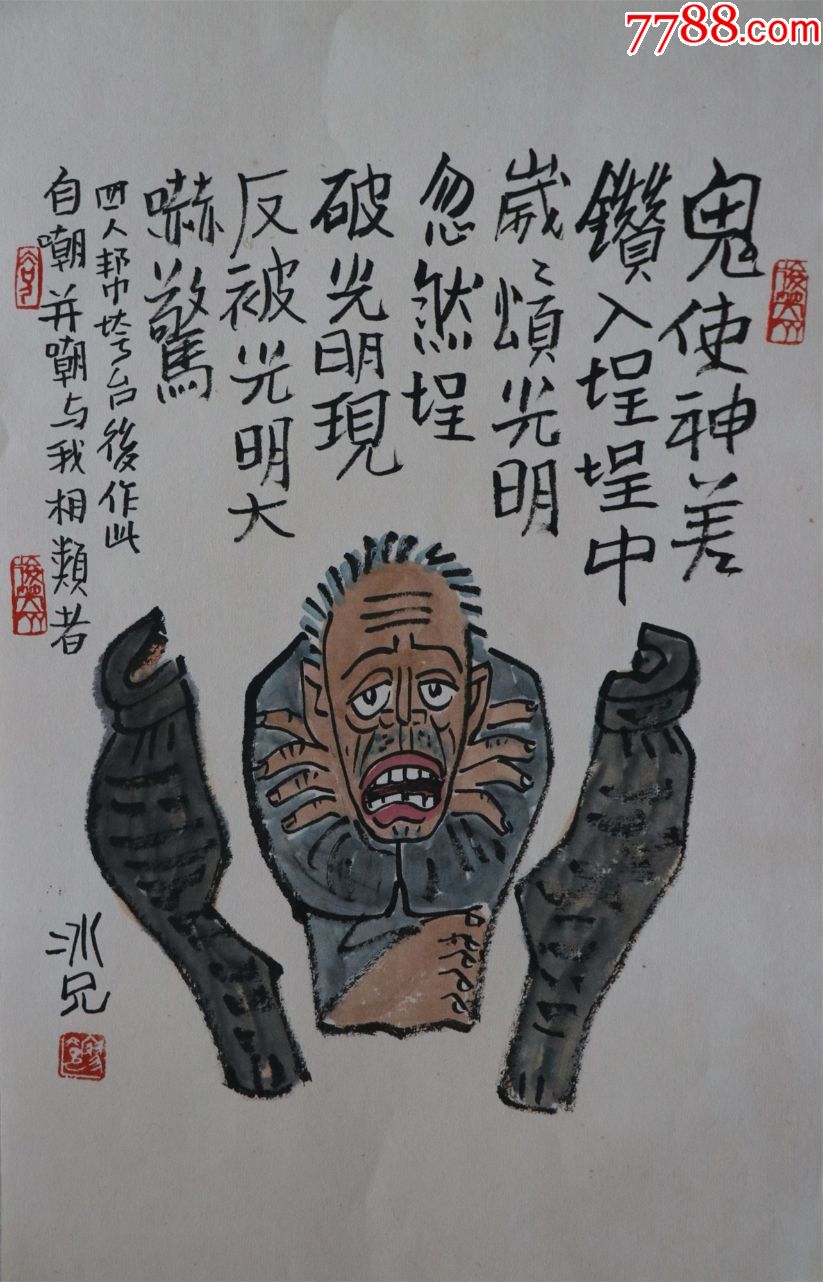 7788.com
鬼使神差
鑽入埕埕中
歲々頌光明
忽然埕
破光明現
反被光明大
嚇驚
四人幫垮台後作此
自嘲并嘲与我相類者
冰兄